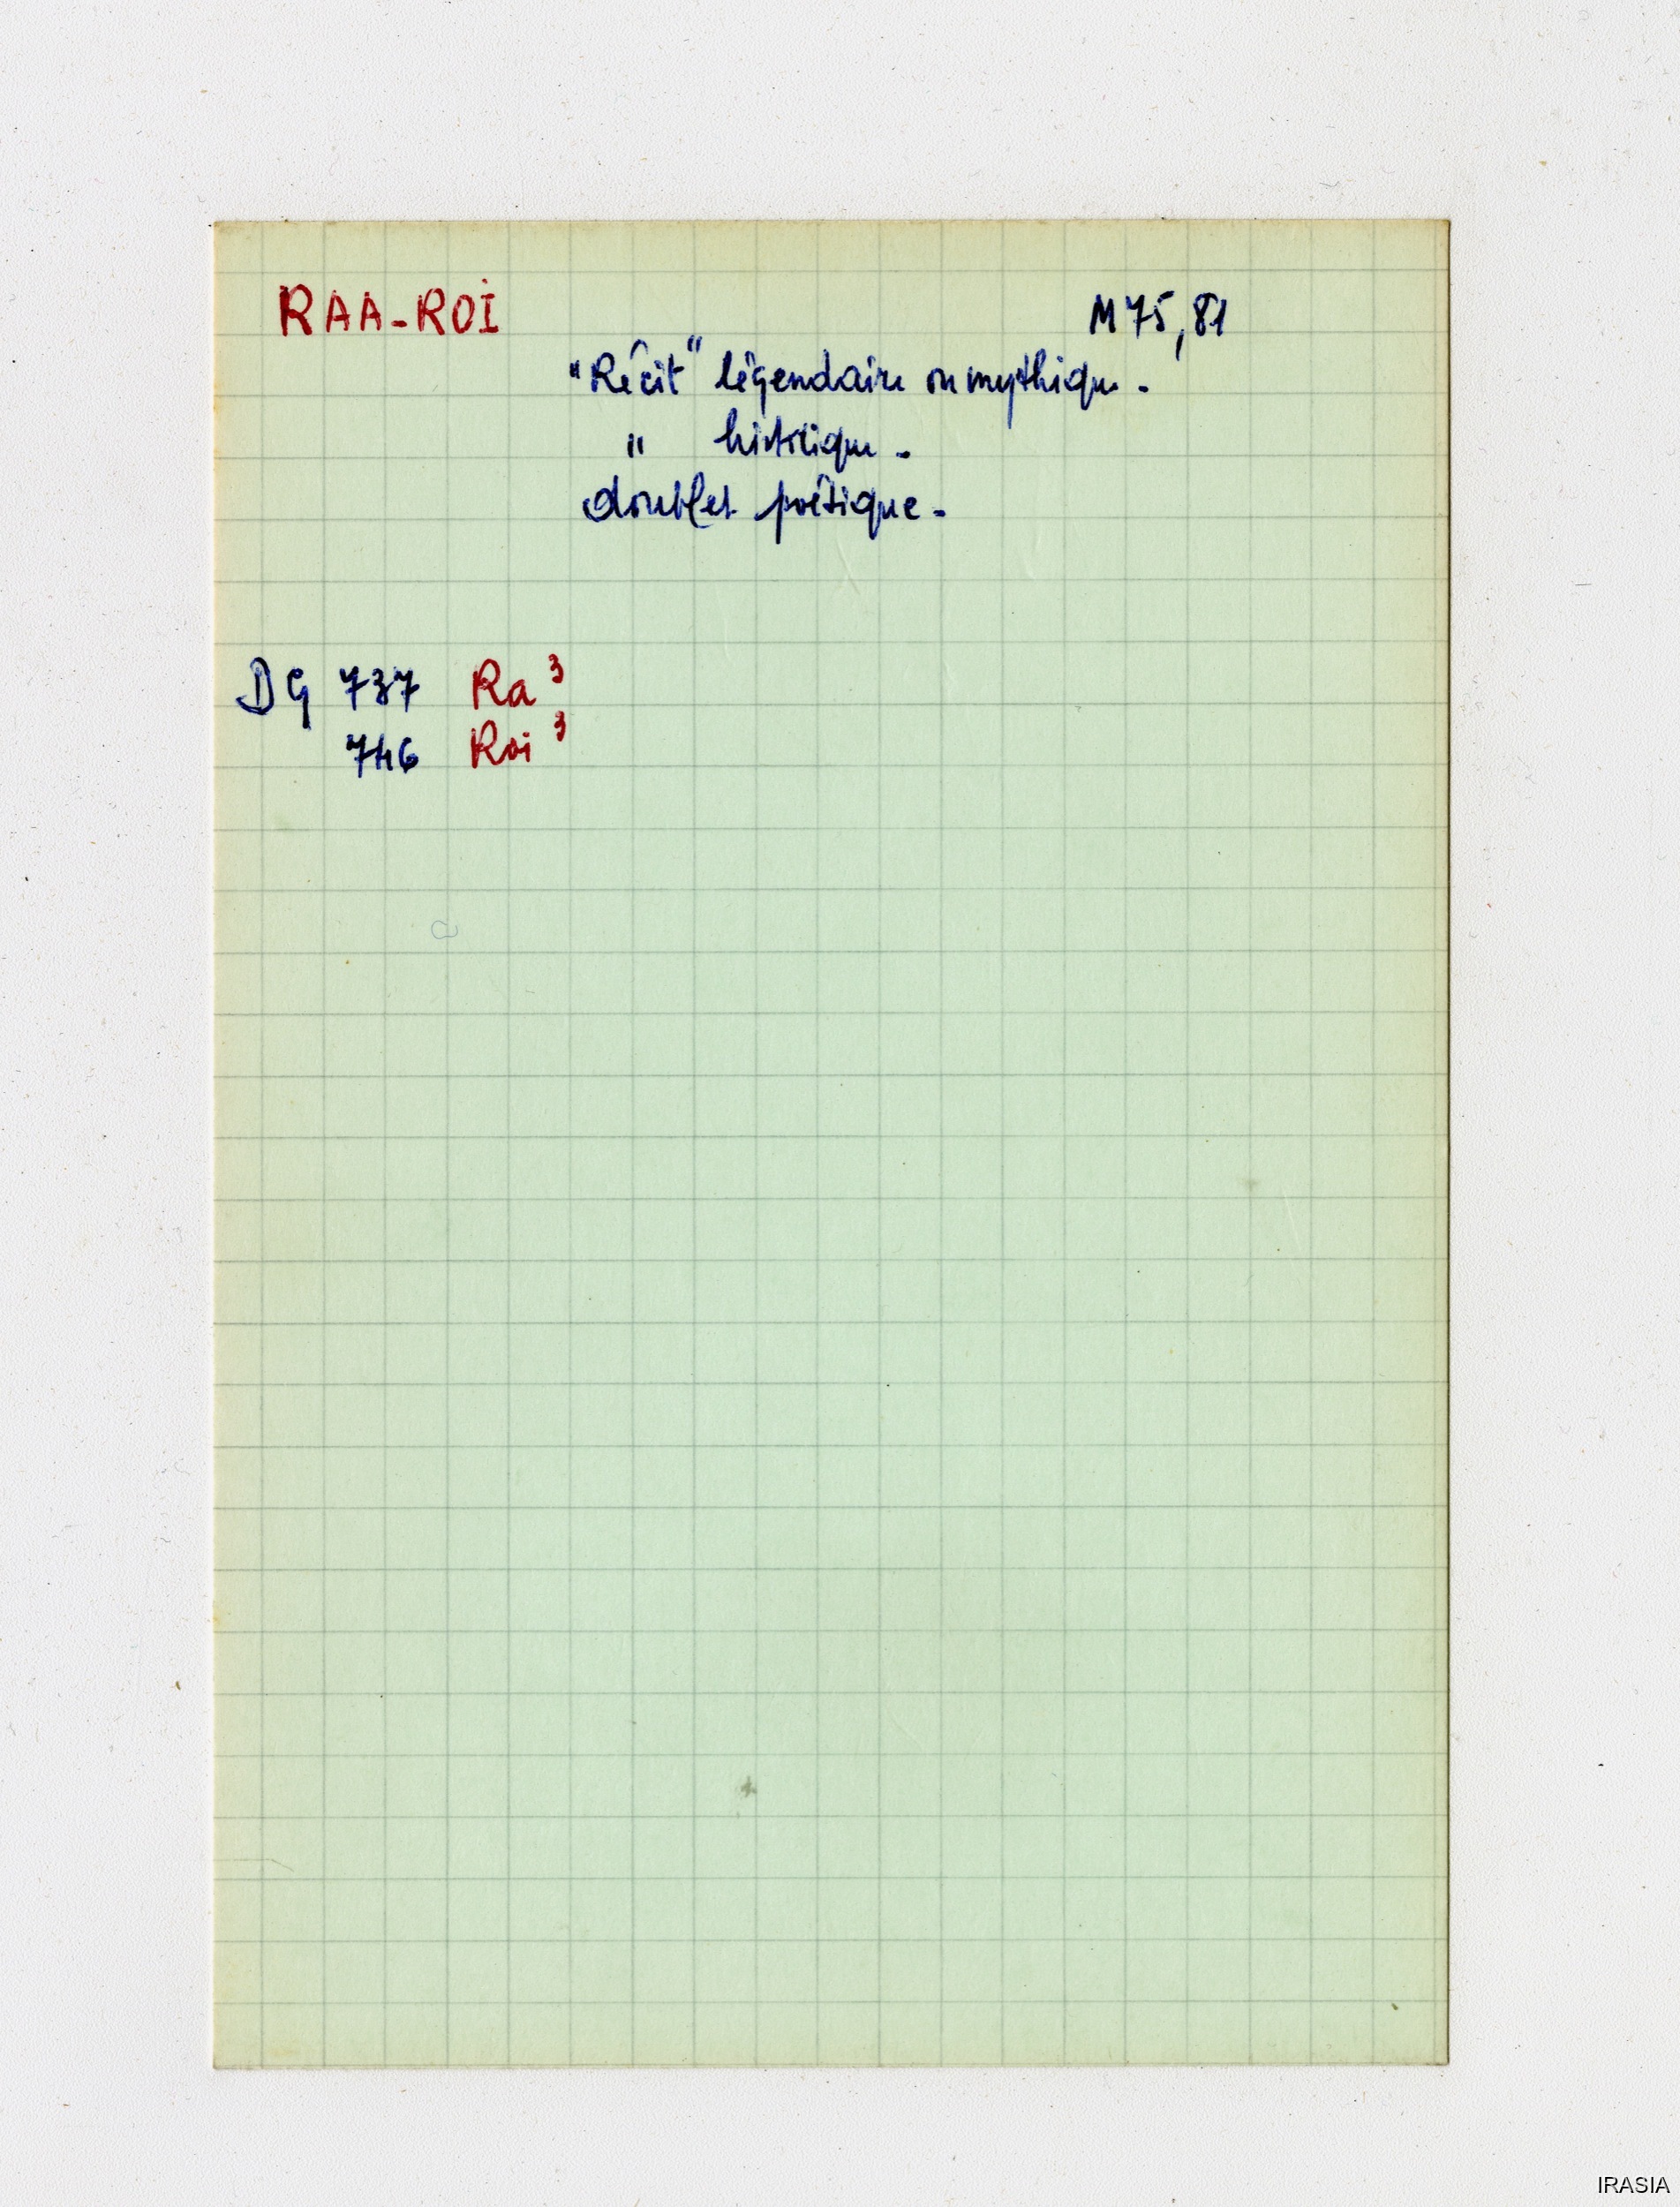 RAA-ROI M75,81
"Récit" légendaire ou mythique -
" historique -
doublet poétique -
DG 737 Ra ³
746 Roi ³
IRASIA